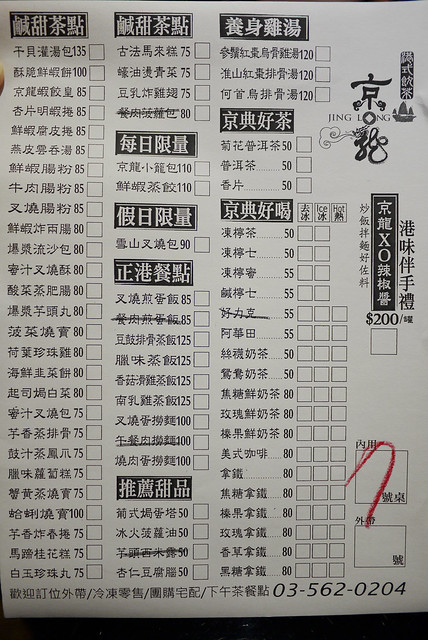 鹹甜茶點
干貝灌湯包135
酥脆鮮蝦餅100
京龍蝦餃皇 85
杏片明蝦捲 85
鮮蝦腐皮捲 85
燕皮雲吞湯 85
鮮蝦腸粉 85
牛肉腸粉 85
叉燒腸粉 85
鮮蝦炸兩腸 80
爆漿流沙包 80
蜜汁叉燒酥 80
酸菜蒸肥腸 80
爆漿芋頭丸 80
菠菜燒賣 80
荷葉珍珠雞 80
海鮮韭菜餅 80
起司焗白菜 80
蜜汁叉燒包 75
芋香蒸排骨 75
豉汁蒸鳳爪 75
臘味蘿蔔糕 75
蟹黃蒸燒賣 75
蛤蜊燒賣100
芋香炸春捲 75
馬蹄桂花糕 75
白玉珍珠丸 75
鹹甜茶點
古法馬來糕 75
蠔油燙青菜 75
豆乳炸雞翅 75
餐肉菠蘿包 80
每日限量
京龍小籠包110
鮮蝦蒸餃110
假日限量
雪山叉燒包 90
正港餐點
叉燒煎蛋飯 85
餐肉煎蛋飯 85
豆豉排骨蒸飯125
臘味蒸飯125
香菇滑雞蒸飯125
南乳雞蒸飯125
叉燒蛋撈麵100
午餐肉撈麵100
燒肉蛋撈麵100
推薦甜品
葡式焗蛋塔 50
冰火菠蘿油 50
芋頭西米露 50
杏仁豆腐腦 50
養身雞湯
參鬚紅棗烏骨雞湯120
淮山紅棗排骨湯120
何首烏排骨湯120
京典好茶
菊花普洱茶 50
普洱茶 50
香片 50
京典好喝 去冰 Ice 冰 Hot 熱
凍檸茶 50
凍檸七 50
凍檸蜜 55
鹹檸七 55
好力克 55
阿華田 55
絲襪奶茶 50
鴛鴦奶茶 50
焦糖鮮奶茶 80
玫瑰鮮奶茶 80
榛果鮮奶茶 80
美式咖啡 80
拿鐵 80
焦糖拿鐵 80
榛果拿鐵 80
玫瑰拿鐵 80
香草拿鐵 80
黑糖拿鐵 80
港式飲茶
京龍
JING LONG
港味伴手禮
京龍XO辣椒醬
炒飯拌麵好佐料
$200/罐
內用
7
號桌
外帶
號
歡迎訂位外帶/冷凍零售/團購宅配/下午茶餐點 03-562-0204